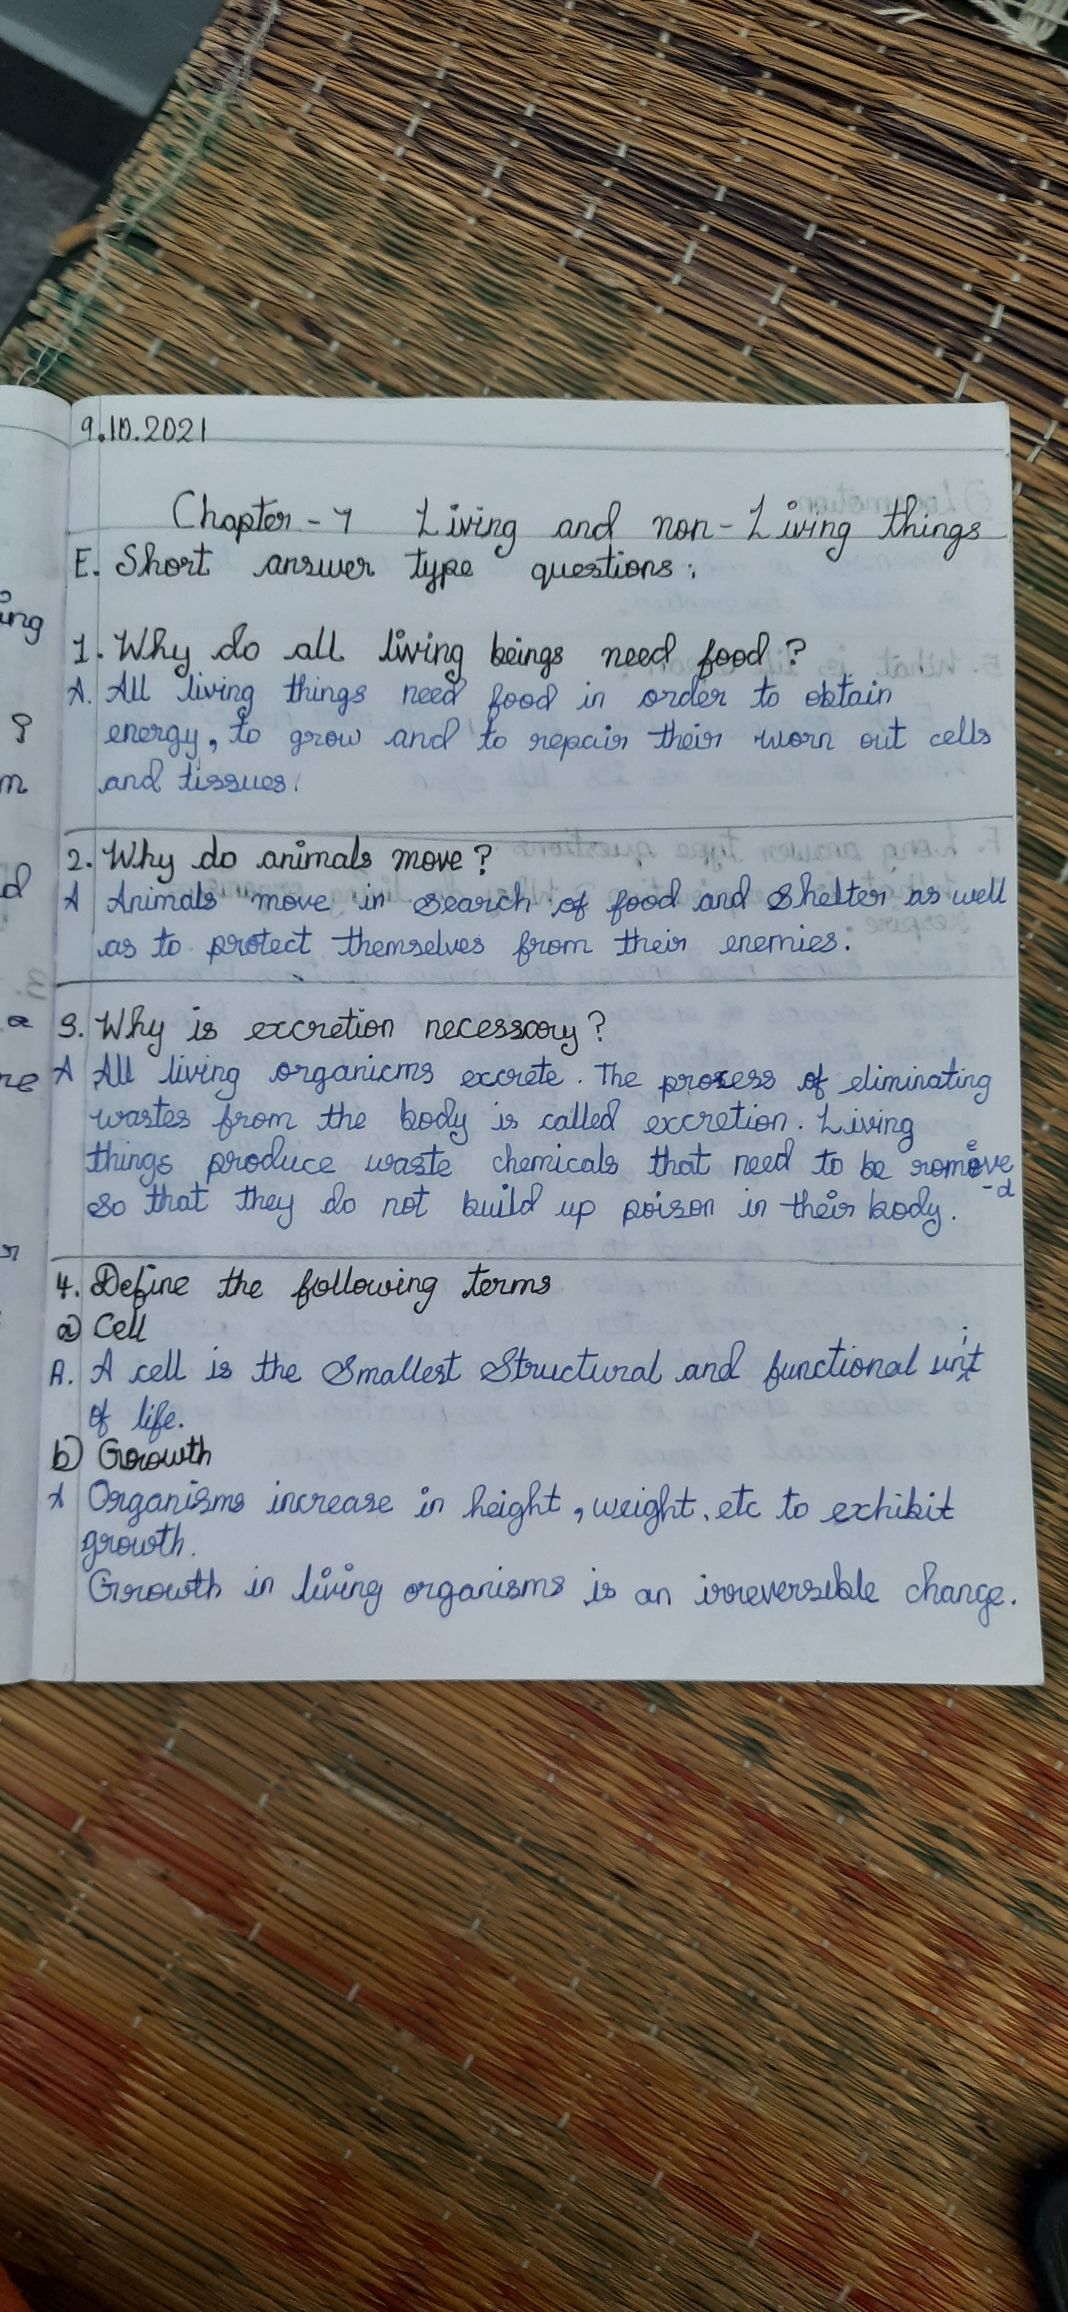 9.10.2021
Chapter - 7 Living and non-Living things
E. Short answer type questions:
1. Why do all living beings need food?
A. All living things need food in order to obtain
energy, to grow and to repair their worn out cells
and tissues.
2. Why do animals move?
A Animals move in search of food and shelter as well
as to protect themselves from their enemies.
3. Why is excretion necessary?
A All living organicms excrete. The process of eliminating
wastes from the body is called excretion. Living
things produce waste chemicals that need to be remove
-d
so that they do not build up poison in their body.
4. Define the following terms
a) Cell
A. A cell is the Smallest Structural and functional unit
of life.
b) Growth
A Organisms increase in height, weight, etc to exhibit
growth.
Growth in living organisms is an irreversible change.